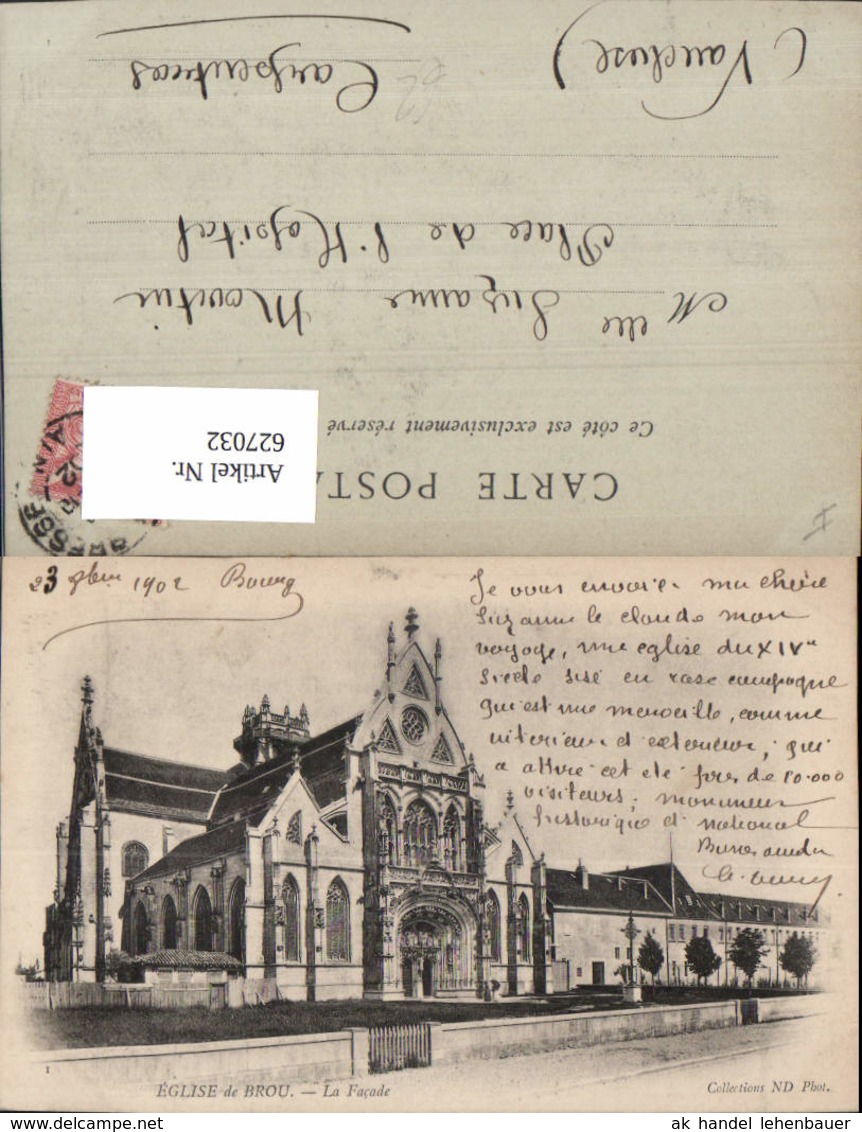 CARTE POSTA
Ce côté est exclusivement réservé
Artikel Nr.
627032
Mlle Suzanne
Place de l'Hopital
Carpentras
(Vaucluse)
23 9bre 1902 Bourg
Je vous envoie ma chère
Suzanne le clou de mon
voyage, une eglise du XIVe
siecle sisé en rase campagne
qui est une merveille, comme
interieur et exterieur, qui
a attiré cet été près de 10.000
visiteurs; monument
historique et national
EGLISE de BROU. — La Façade
1
Collections ND Phot.
ak handel lehenbauer